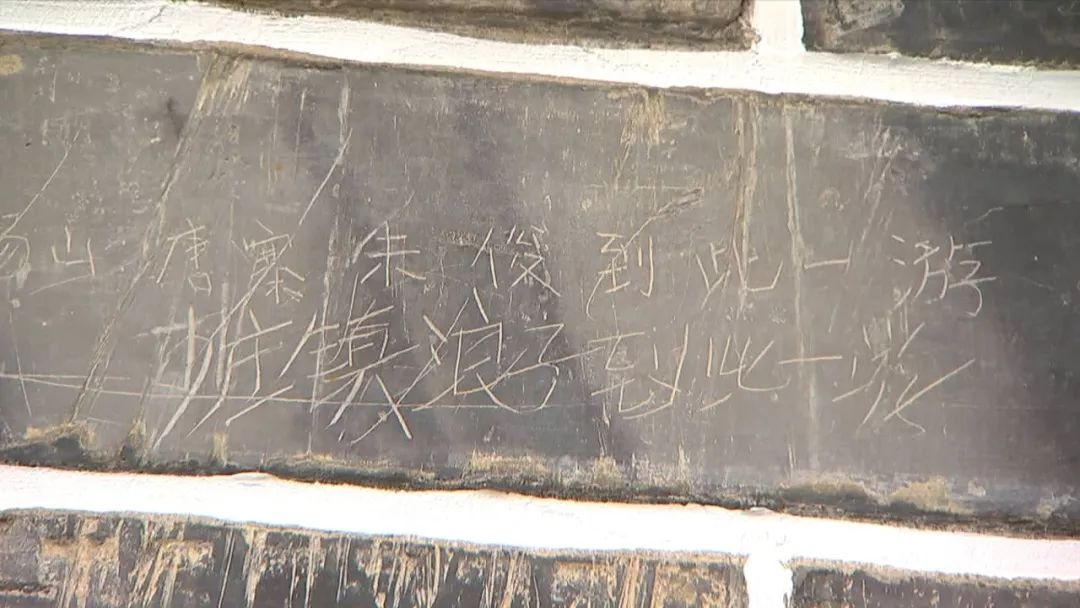 山唐家朱俊到此一游
浪子到此一游